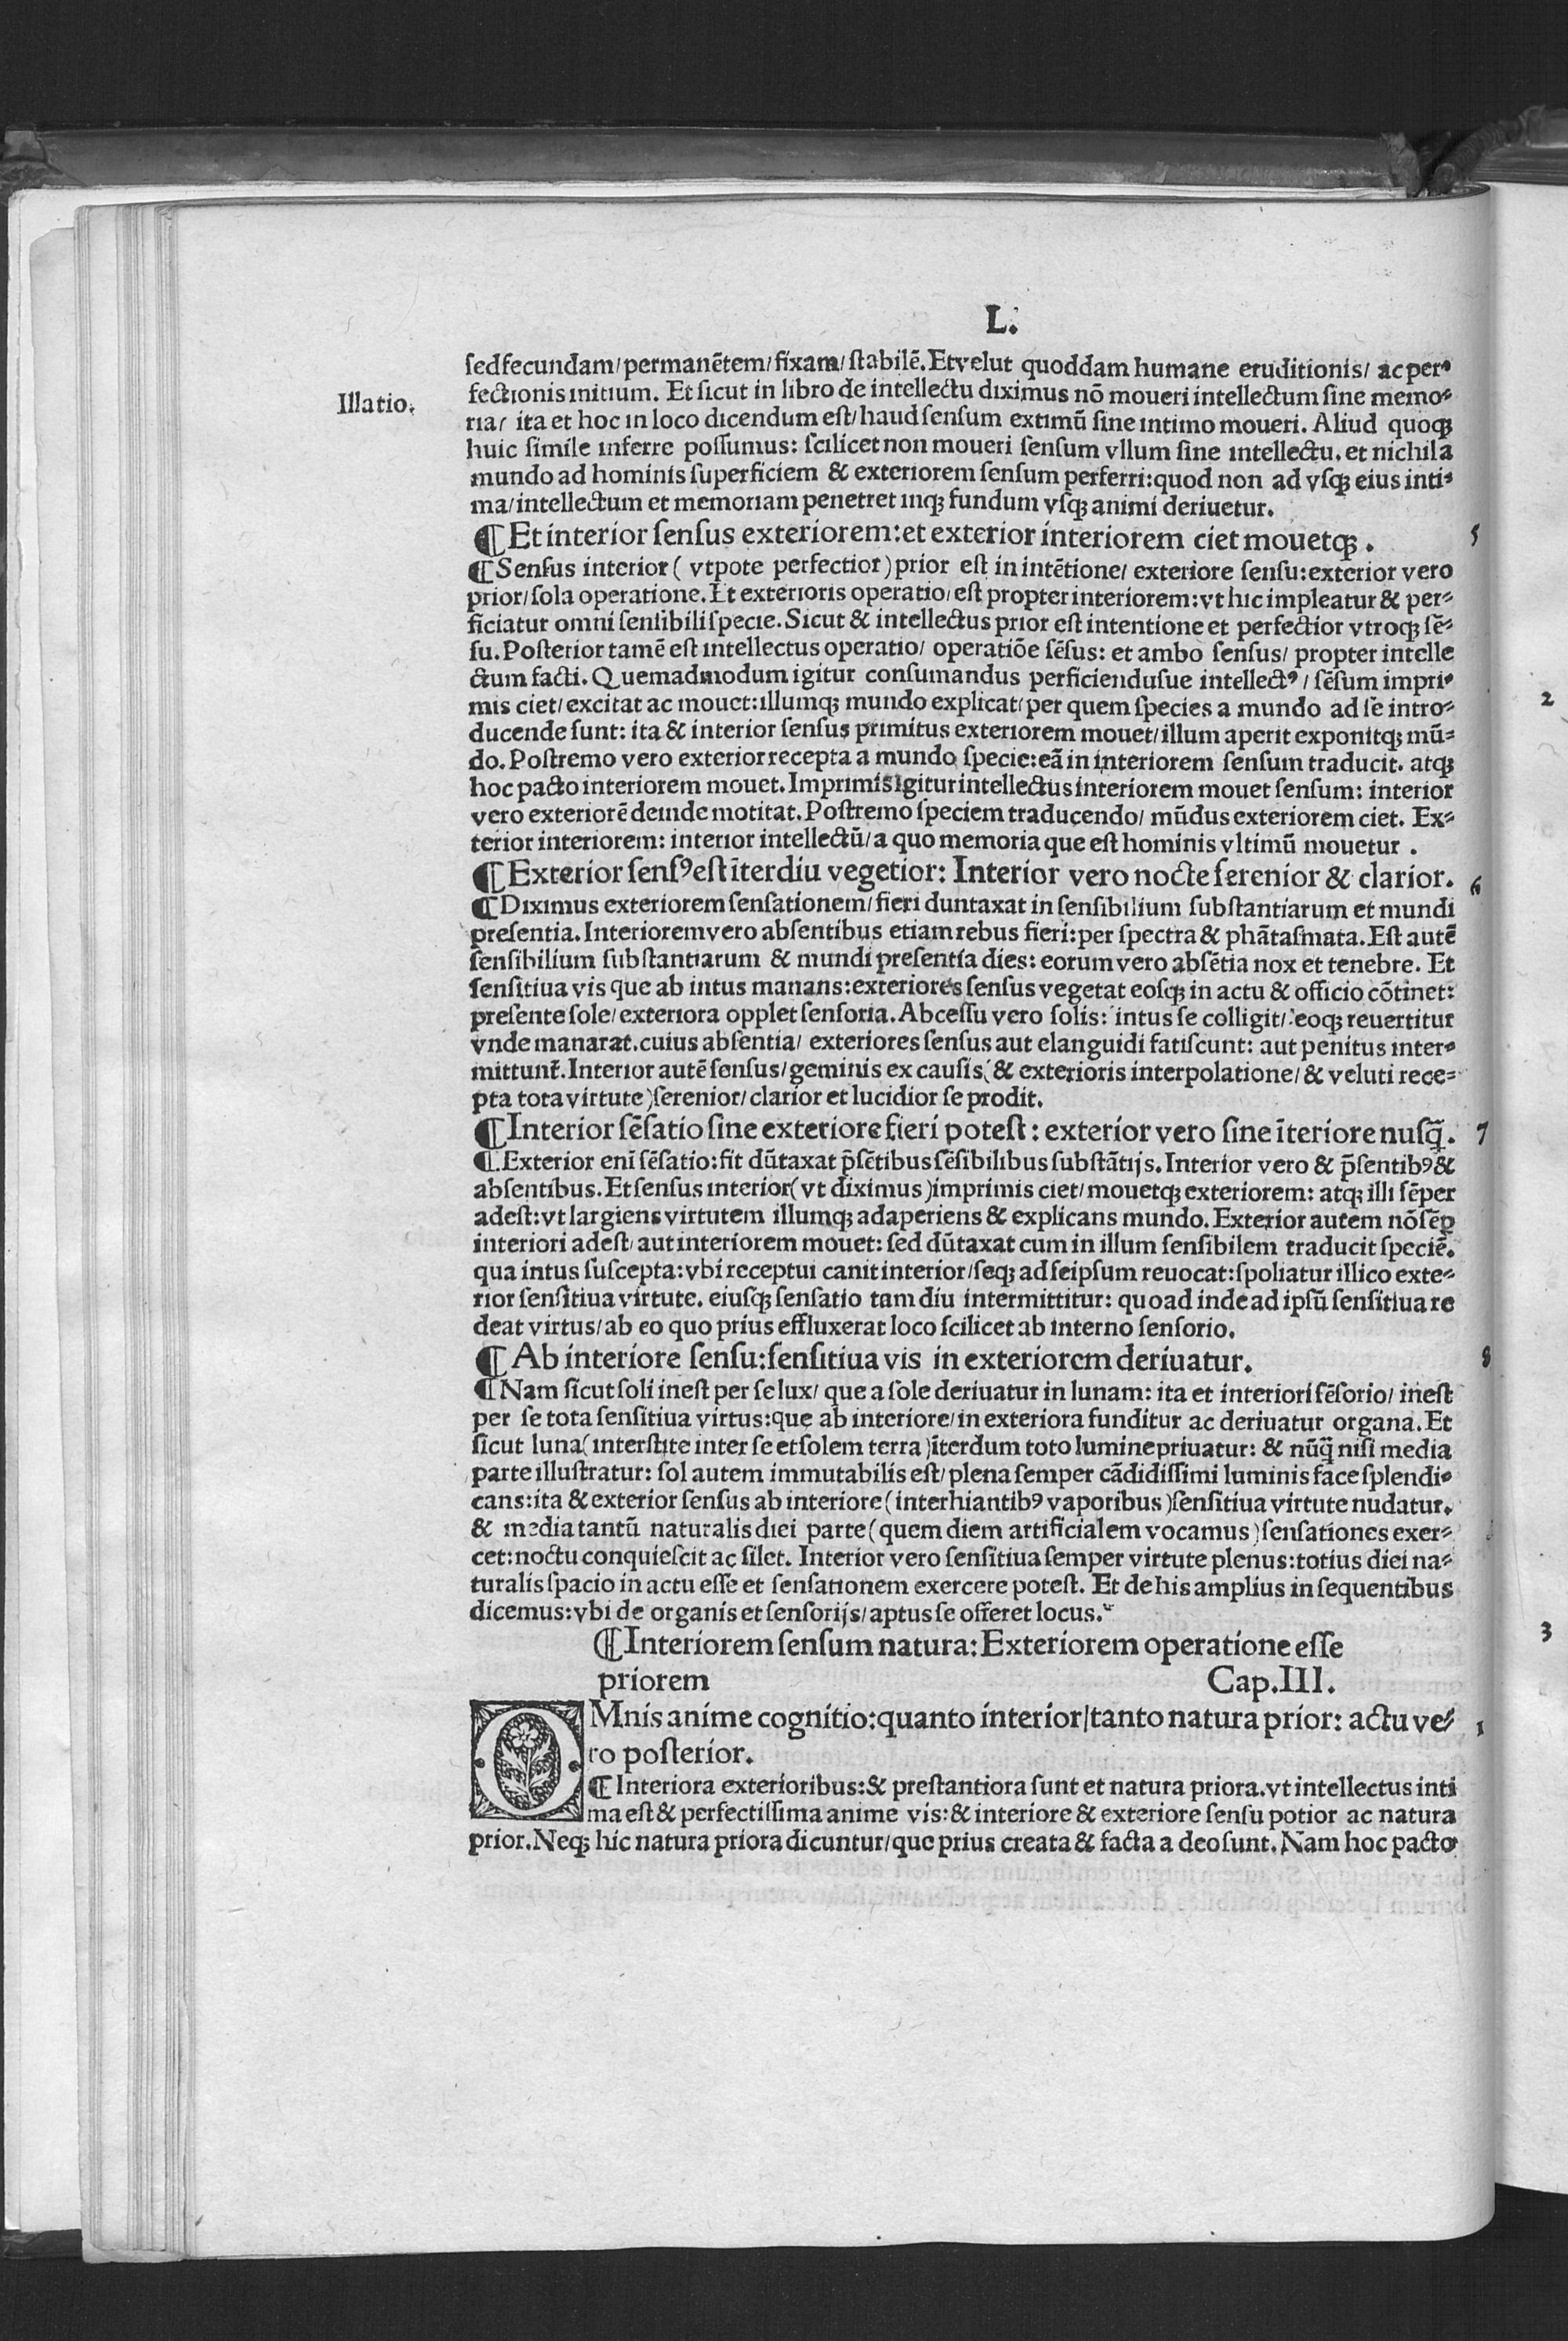 L.
sed fecundam/ permanētem/ fixam/ stabilē. Et velut quoddam humane eruditionis/ ac per-
Illatio.
fectionis initium. Et sicut in libro de intellectu diximus nō moueri intellectum sine memo-
ria/ ita et hoc in loco dicendum est/ haud sensum extimū sine intimo moueri. Aliud quoqꝫ
huic simile inferre possumus: scilicet non moueri sensum vllum sine intellectu. et nichil a
mundo ad hominis superficiem & exteriorem sensum perferri: quod non ad vsqꝫ eius inti-
ma/ intellectum et memoriam penetret inqꝫ fundum vsqꝫ animi deriuetur.
¶ Et interior sensus exteriorem: et exterior interiorem ciet mouetqꝫ. 5
¶ Sensus interior ( vtpote perfectior ) prior est in intētione/ exteriore sensu: exterior vero
prior/ sola operatione. Et exterioris operatio/ est propter interiorem: vt hic impleatur & per-
ficiatur omni sensibili specie. Sicut & intellectus prior est intentione et perfectior vtroqꝫ sē-
su. Posterior tamē est intellectus operatio/ operatiōe sēsus: et ambo sensus/ propter intelle
ctum facti. Quemadmodum igitur consumandus perficiendusue intellectꝰ/ sēsum impri-
mis ciet/ excitat ac mouet: illumqꝫ mundo explicat/ per quem species a mundo ad se intro-
ducende sunt: ita & interior sensus primitus exteriorem mouet/ illum aperit exponitqꝫ mū-
do. Postremo vero exterior recepta a mundo specie: eā in interiorem sensum traducit. atqꝫ
hoc pacto interiorem mouet. Imprimis igitur intellectus interiorem mouet sensum: interior
vero exteriorē deinde motitat. Postremo speciem traducendo/ mūdus exteriorem ciet. Ex-
terior interiorem: interior intellectū/ a quo memoria que est hominis vltimū mouetur .
¶ Exterior sensꝰ est īterdiu vegetior: Interior vero nocte serenior & clarior. 6
¶ Diximus exteriorem sensationem/ fieri duntaxat in sensibilium substantiarum et mundi
presentia. Interiorem vero absentibus etiam rebus fieri: per spectra & phātasmata. Est autē
sensibilium substantiarum & mundi presentia dies: eorum vero absētia nox et tenebre. Et
sensitiua vis que ab intus manans: exteriores sensus vegetat eosqꝫ in actu & officio cōtinet:
presente sole/ exteriora opplet sensoria. Abcessu vero solis: intus se colligit/ eoqꝫ reuertitur
vnde manarat. cuius absentia/ exteriores sensus aut elanguidi fatiscunt: aut penitus inter-
mittunt̄. Interior autē sensus/ geminis ex causis ( & exterioris interpolatione/ & veluti rece-
pta tota virtute ) serenior/ clarior et lucidior se prodit.
¶ Interior sēsatio sine exteriore fieri potest: exterior vero sine īteriore nusq̄. 7
¶. Exterior eni sēsatio: fit dūtaxat p̄sētibus sēsibilibus substātijs. Interior vero & p̄sentibꝰ &
absentibus. Et sensus interior ( vt diximus ) imprimis ciet/ mouetqꝫ exteriorem: atqꝫ illi sēper
adest: vt largiens virtutem illumqꝫ adaperiens & explicans mundo. Exterior autem nō sēꝑ
interiori adest/ aut interiorem mouet: sed dūtaxat cum in illum sensibilem traducit speciē.
qua intus suscepta: vbi receptui canit interior/ seqꝫ ad seipsum reuocat: spoliatur illico exte-
rior sensitiua virtute. eiusqꝫ sensatio tam diu intermittitur: quoad inde ad ipsū sensitiua re
deat virtus/ ab eo quo prius effluxerat loco scilicet ab interno sensorio.
¶ Ab interiore sensu: sensitiua vis in exteriorem deriuatur. 8
¶ Nam sicut soli inest per se lux/ que a sole deriuatur in lunam: ita et interiori sēsorio/ inest
per se tota sensitiua virtus: que ab interiore/ in exteriora funditur ac deriuatur organa. Et
sicut luna ( interstite inter se et solem terra ) īterdum toto lumine priuatur: & nūq̄ nisi media
parte illustratur: sol autem immutabilis est/ plena semper cādidissimi luminis face splendi-
cans: ita & exterior sensus ab interiore ( interhiantibꝰ vaporibus ) sensitiua virtute nudatur.
& media tantū naturalis diei parte ( quem diem artificialem vocamus ) sensationes exer-
cet: noctu conquiescit ac silet. Interior vero sensitiua semper virtute plenus: totius diei na-
turalis spacio in actu esse et sensationem exercere potest. Et de his amplius in sequentibus
dicemus: vbi de organis et sensorijs/ aptus se offeret locus.
¶ Interiorem sensum natura: Exteriorem operatione esse
priorem Cap.III.
OMnis anime cognitio: quanto interior/ tanto natura prior: actu ve- 1
ro posterior.
¶ Interiora exterioribus: & prestantiora sunt et natura priora. vt intellectus inti
ma est & perfectissima anime vis: & interiore & exteriore sensu potior ac natura
prior. Neqꝫ hic natura priora dicuntur/ que prius creata & facta a deo sunt. Nam hoc pacto
2
3